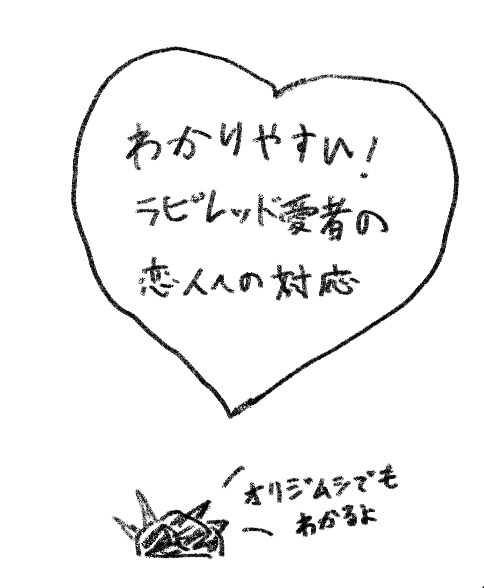 わかりやすい!
ラビレッド愛者の
恋人への対応
オリジムシでも
わかるよ